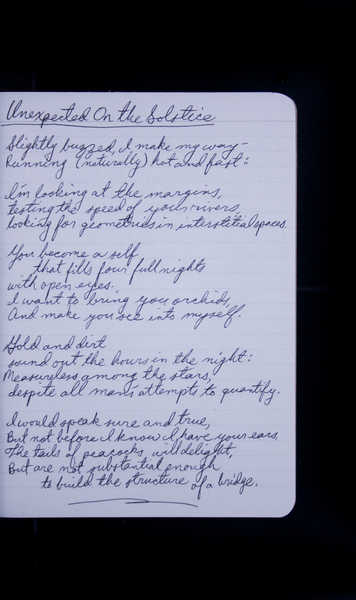 Unexpected On the Solstice
Slightly buzzed, I make my way—
Running (naturally) hot and fast:
I'm looking at the margins,
testing the speed of your rivers,
looking for geometries in interstitial spaces.
You become a self
that fills four full nights
with open eyes.
I want to bring you orchids,
And make you see into myself.
Gold and dirt
sound out the hours in the night:
Measureless among the stars,
despite all man's attempts to quantify.
I would speak sure and true,
But not before I know I have your ears.
The tails of peacocks will delight,
But are not substantial enough
to build the structure of a bridge.